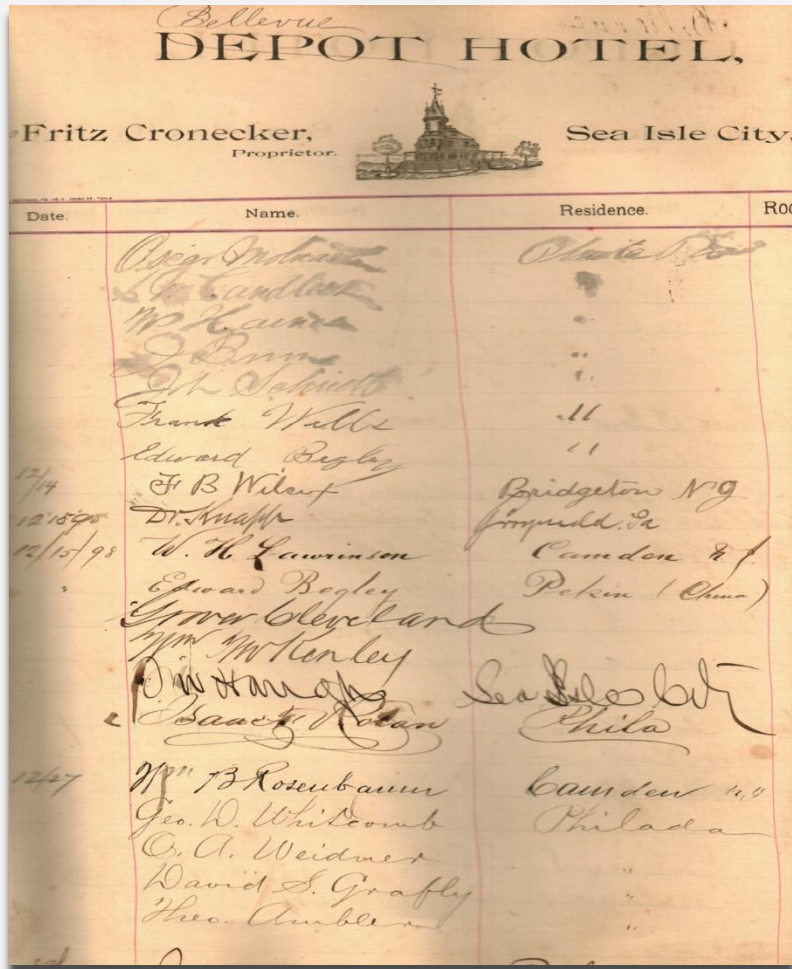 Bellevue
DEPOT HOTEL,
Fritz Cronecker,
Proprietor.
Sea Isle City,
Date. Name. Residence. Roo
Oscar
Candlass
Wm Haines "
J Brun "
Joh Schmidt "
Frank Wills "
Edward Begley "
12/14 F B Wilcox Bridgeton N J
12 15 98 Dr. Knapp Pa
12/15/98 W. H. Lawrinson Camden N J.
" Edward Begley Pekin (China)
Grover Cleveland
Wm McKenley
Haugh Sea Isles City
Isaac Phila
12/27 Wm B Rosenbaum Camden "
Geo. D. Whitcomb Philada
O. A. Weidner
David S. Grafly "
Theo. Ambler "